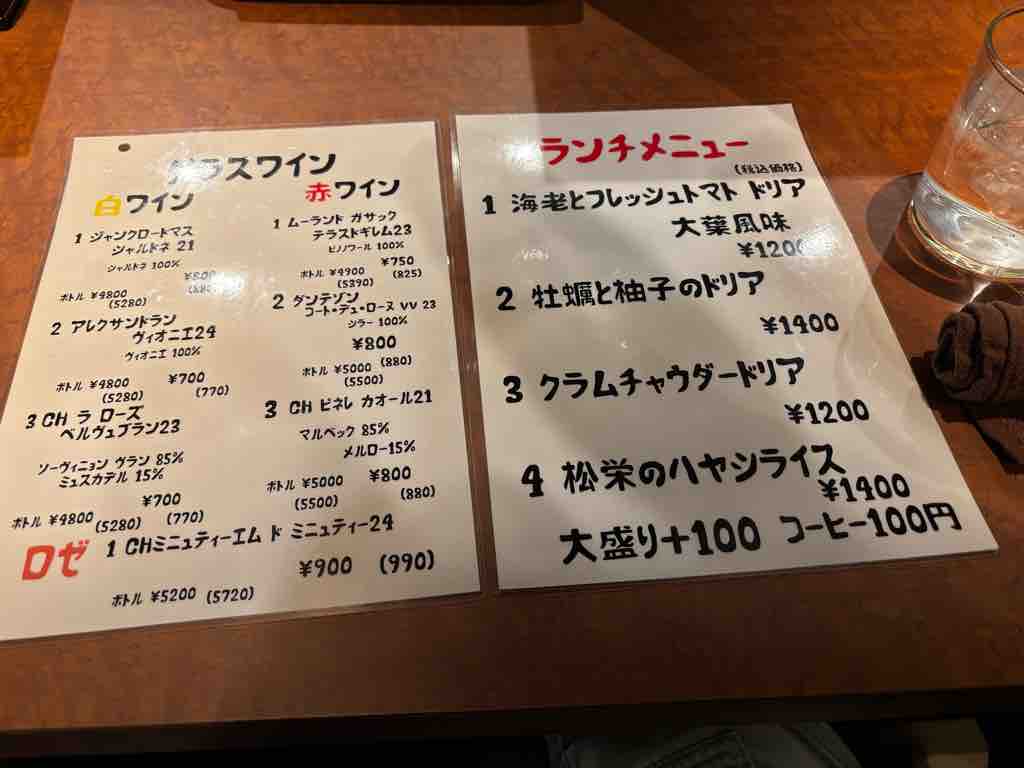 グラスワイン
白ワイン
1 ジャンクロードマス
シャルドネ 21
シャルドネ 100%
¥800
(880)
ボトル ¥4800
(5280)
2 アレクサンドラン
ヴィオニエ24
ヴィオニエ 100%
¥700
(770)
ボトル ¥4800
(5280)
3 CH ラ ローズ
ベルヴュブラン23
ソーヴィニョン ヴラン 85%
ミュスカデル 15%
¥700
(770)
ボトル ¥4800
(5280)
赤ワイン
1 ムーランド ガサック
テラストギレム23
ピノノワール 100%
¥750
(825)
ボトル ¥4900
(5390)
2 ダンテゾン
コート・デュ・ローヌ VV 23
シラー 100%
¥800
(880)
ボトル ¥5000
(5500)
3 CH ピネレ カオール21
マルベック 85%
メルロー15%
¥800
(880)
ボトル ¥5000
(5500)
ロゼ
1 CHミニュティーエム ド ミニュティー24
¥900 (990)
ボトル ¥5200 (5720)
ランチメニュー
(税込価格)
1 海老とフレッシュトマト ドリア
大葉風味
¥1200
2 牡蠣と柚子のドリア
¥1400
3 クラムチャウダードリア
¥1200
4 松栄のハヤシライス
¥1400
大盛り+100 コーヒー100円